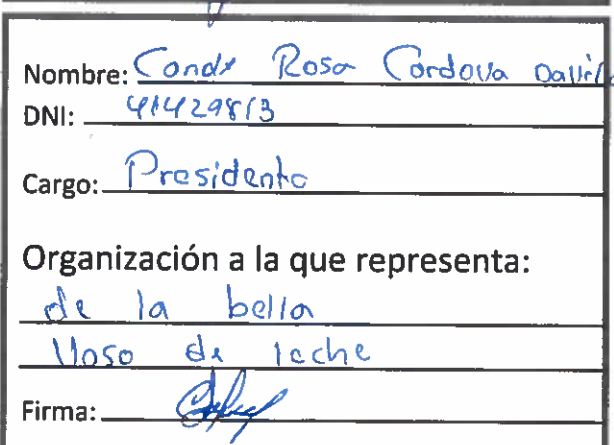 Nombre: Condy Rosa Cordova Davila
DNI: 41429813
Cargo: Presidenta
Organización a la que representa:
de la bella
Vaso de leche
Firma: